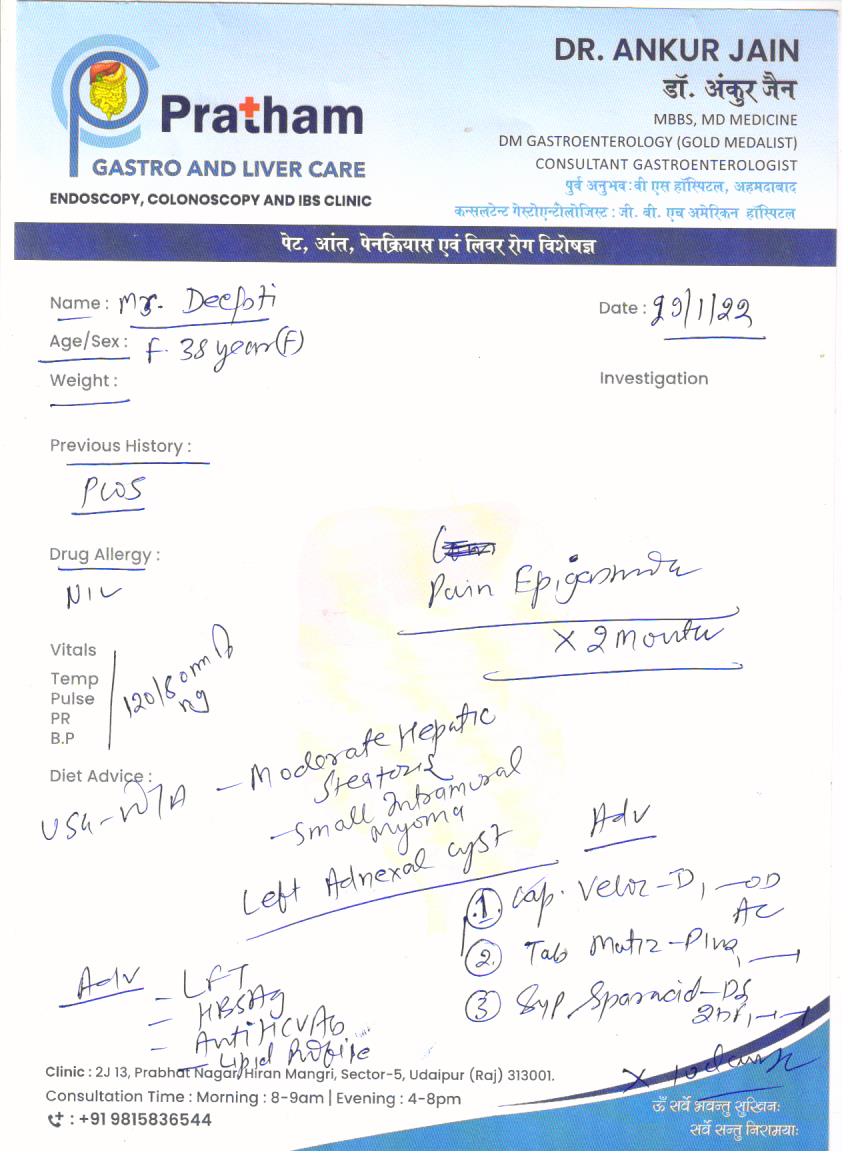 DR. ANKUR JAIN
डॉ. अंकुर जैन
MBBS, MD MEDICINE
DM GASTROENTEROLOGY (GOLD MEDALIST)
CONSULTANT GASTROENTEROLOGIST
पुर्व अनुभव:वी एस हॉस्पिटल, अहमदाबाद
कन्सलटेन्ट गेस्टोएन्टोलोजिस्ट : जी. बी. एच अमेरिकन हॉस्पिटल
Pratham
GASTRO AND LIVER CARE
ENDOSCOPY, COLONOSCOPY AND IBS CLINIC
पेट, आंत, पेनक्रियास एवं लिवर रोग विशेषज्ञ
Name : Deepti
Date : 29/1/22
Age/Sex : F. 38 year (F)
Weight :
Investigation
Previous History :
PCOS
Drug Allergy :
NIL
Pain
x 2 month
Vitals
Temp
Pulse
PR
B.P
120/80 mm
Diet Advice :
USG - W/A - Moderate Hepatic
Steatosis
- Small Intramural
myoma
Left Adnexal cyst
Adv
1. Cap. Veloz-D, - OD
AC
2. Tab
3 Syp Sparacid-DS
Adv - LFT
- HBSAg
- Anti HCV Ab
- Lipid Profile
Clinic : 2J 13, Prabhat Nagar, Hiran Mangri, Sector-5, Udaipur (Raj) 313001.
Consultation Time : Morning : 8-9am | Evening : 4-8pm
: +91 9815836544
ॐ सर्वे भवन्तु सुखिनः
सर्वे सन्तु निरामयाः